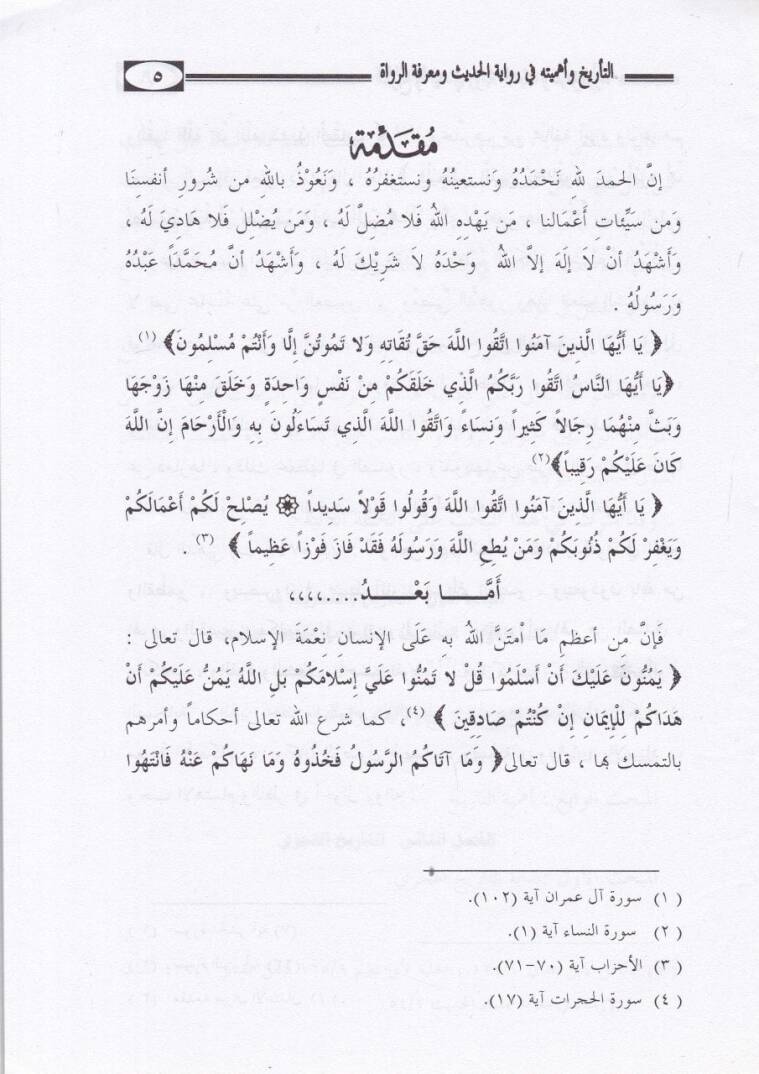 التأريخ وأهميته في رواية الحديث ومعرفة الرواة
٥
مُقَدِّمَة
إنَّ الحمدَ للهِ نَحْمَدُهُ وَنستعينُهُ ونستغفرُهُ ، وَنَعُوْذُ باللهِ من شُرورِ أنفسِنَا
وَمن سَيِّئات أَعْمَالنا ، مَن يَهْدِهِ اللهُ فَلا مُضِلَّ لَهُ ، وَمَن يُضْلل فَلا هَاديَ لَهُ ،
وَأَشْهَدُ أنْ لاَ إلَهَ إلاَّ اللهُ وَحْدَهُ لاَ شَرِيْكَ لَهُ ، وَأَشْهَدُ أنَّ مُحَمَّدَاً عَبْدُهُ
وَرَسُولُهُ .
﴿ يَا أَيُّهَا الَّذِينَ آمَنُوا اتَّقُوا اللَّهَ حَقَّ تُقَاتِهِ وَلا تَمُوتُنَّ إِلَّا وَأَنْتُمْ مُسْلِمُونَ﴾ (١)
﴿يَا أَيُّهَا النَّاسُ اتَّقُوا رَبَّكُمُ الَّذِي خَلَقَكُمْ مِنْ نَفْسٍ وَاحِدَةٍ وَخَلَقَ مِنْهَا زَوْجَهَا
وَبَثَّ مِنْهُمَا رِجَالاً كَثِيراً وَنِسَاءً وَاتَّقُوا اللَّهَ الَّذِي تَسَاءَلُونَ بِهِ وَالْأَرْحَامَ إِنَّ اللَّهَ
كَانَ عَلَيْكُمْ رَقِيباً﴾(٢)
﴿ يَا أَيُّهَا الَّذِينَ آمَنُوا اتَّقُوا اللَّهَ وَقُولُوا قَوْلاً سَدِيداً ۞ يُصْلِحْ لَكُمْ أَعْمَالَكُمْ
وَيَغْفِرْ لَكُمْ ذُنُوبَكُمْ وَمَنْ يُطِعِ اللَّهَ وَرَسُولَهُ فَقَدْ فَازَ فَوْزاً عَظِيماً ﴾ (٣) .
أَمَّـــا بَعْـــدُ.....،،،،
فَإنَّ مِن أعظمِ مَا امتَنَّ اللهُ بِهِ عَلَىَ الإنسانِ نِعْمَةَ الإسلام، قال تعالى :
﴿ يَمُنُّونَ عَلَيْكَ أَنْ أَسْلَمُوا قُلْ لا تَمُنُّوا عَلَيَّ إِسْلامَكُمْ بَلِ اللَّهُ يَمُنُّ عَلَيْكُمْ أَنْ
هَدَاكُمْ لِلْإِيمَانِ إِنْ كُنْتُمْ صَادِقِينَ ﴾ (٤)، كما شرع الله تعالى أحكاماً وأمرهم
بالتمسك بها ، قال تعالى﴿ وَمَا آتَاكُمُ الرَّسُولُ فَخُذُوهُ وَمَا نَهَاكُمْ عَنْهُ فَانْتَهُوا
( ١) سورة آل عمران آية (١٠٢).
( ٢) سورة النساء آية (١).
( ٣) الأحزاب آية (٧٠-٧١).
( ٤) سورة الحجرات آية (١٧).